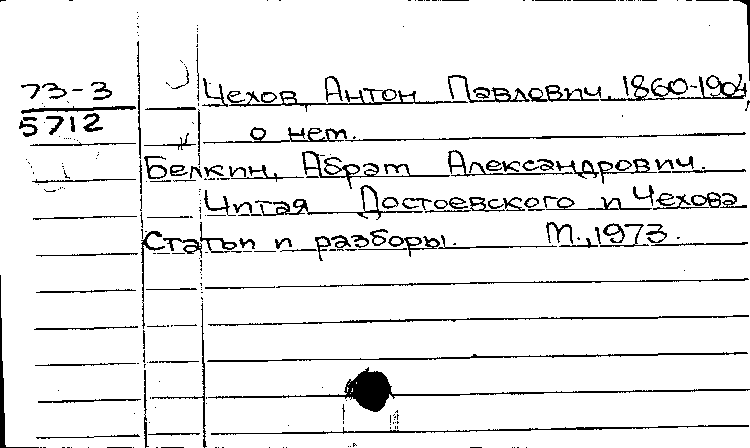 73-3 Чехов, Антон Павлович. 1860-1904,
5712 о нем.
Белкин, Абрам Александрович.
Читая Достоевского и Чехова
Статьи и разборы. М., 1973.